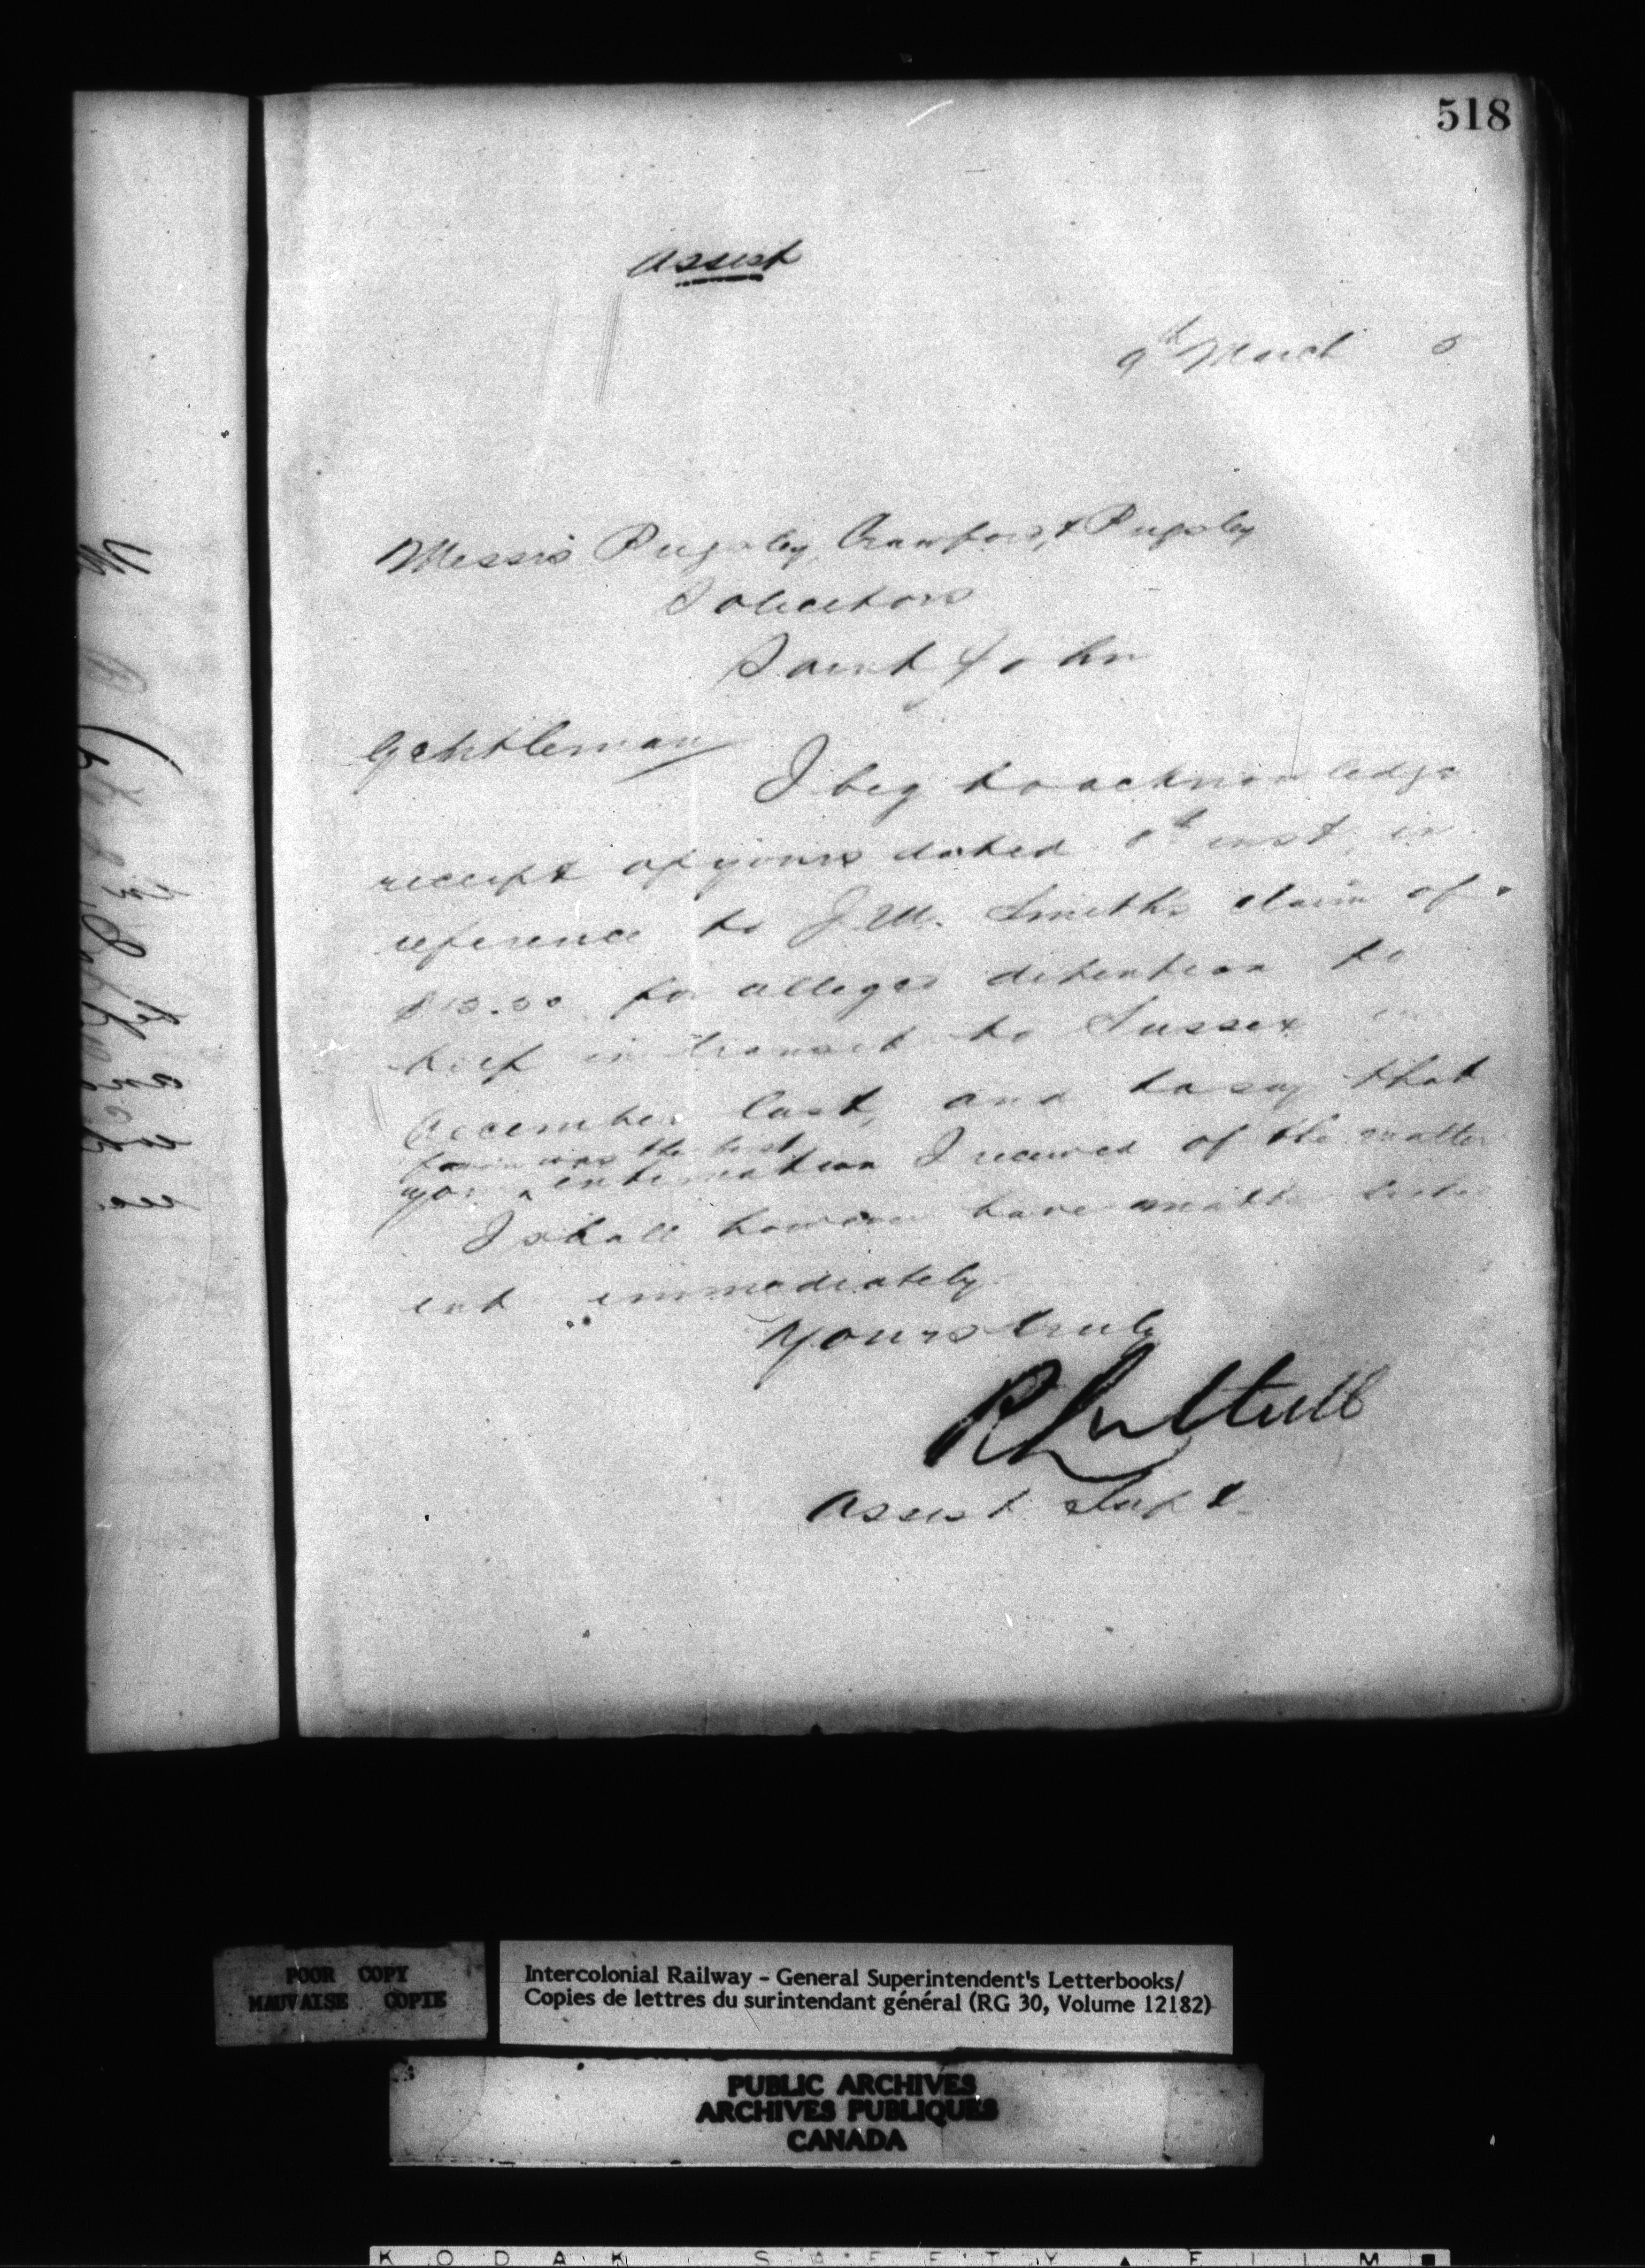 518
Assist
9th March 5
Messrs Pugsley, Crawford, & Pugsley
Solicitors
Saint John
Gentleman
I beg to acknowledge
receipt of yours dated inst, in
reference to J.W. Smith's claim of
for alleged detention to
beef in transit to Sussex in
December last, and to say that
was the first
your intimation I received of the matter
I shall however have matter
immediately
Yours truly
R Luttrell
Assist Supt
POOR COPY
MAUVAISE COPIE
Intercolonial Railway - General Superintendent's Letterbooks/
Copies de lettres du surintendant général (RG 30, Volume 12182)
PUBLIC ARCHIVES
ARCHIVES PUBLIQUES
CANADA
KODAK SAFETY FILM